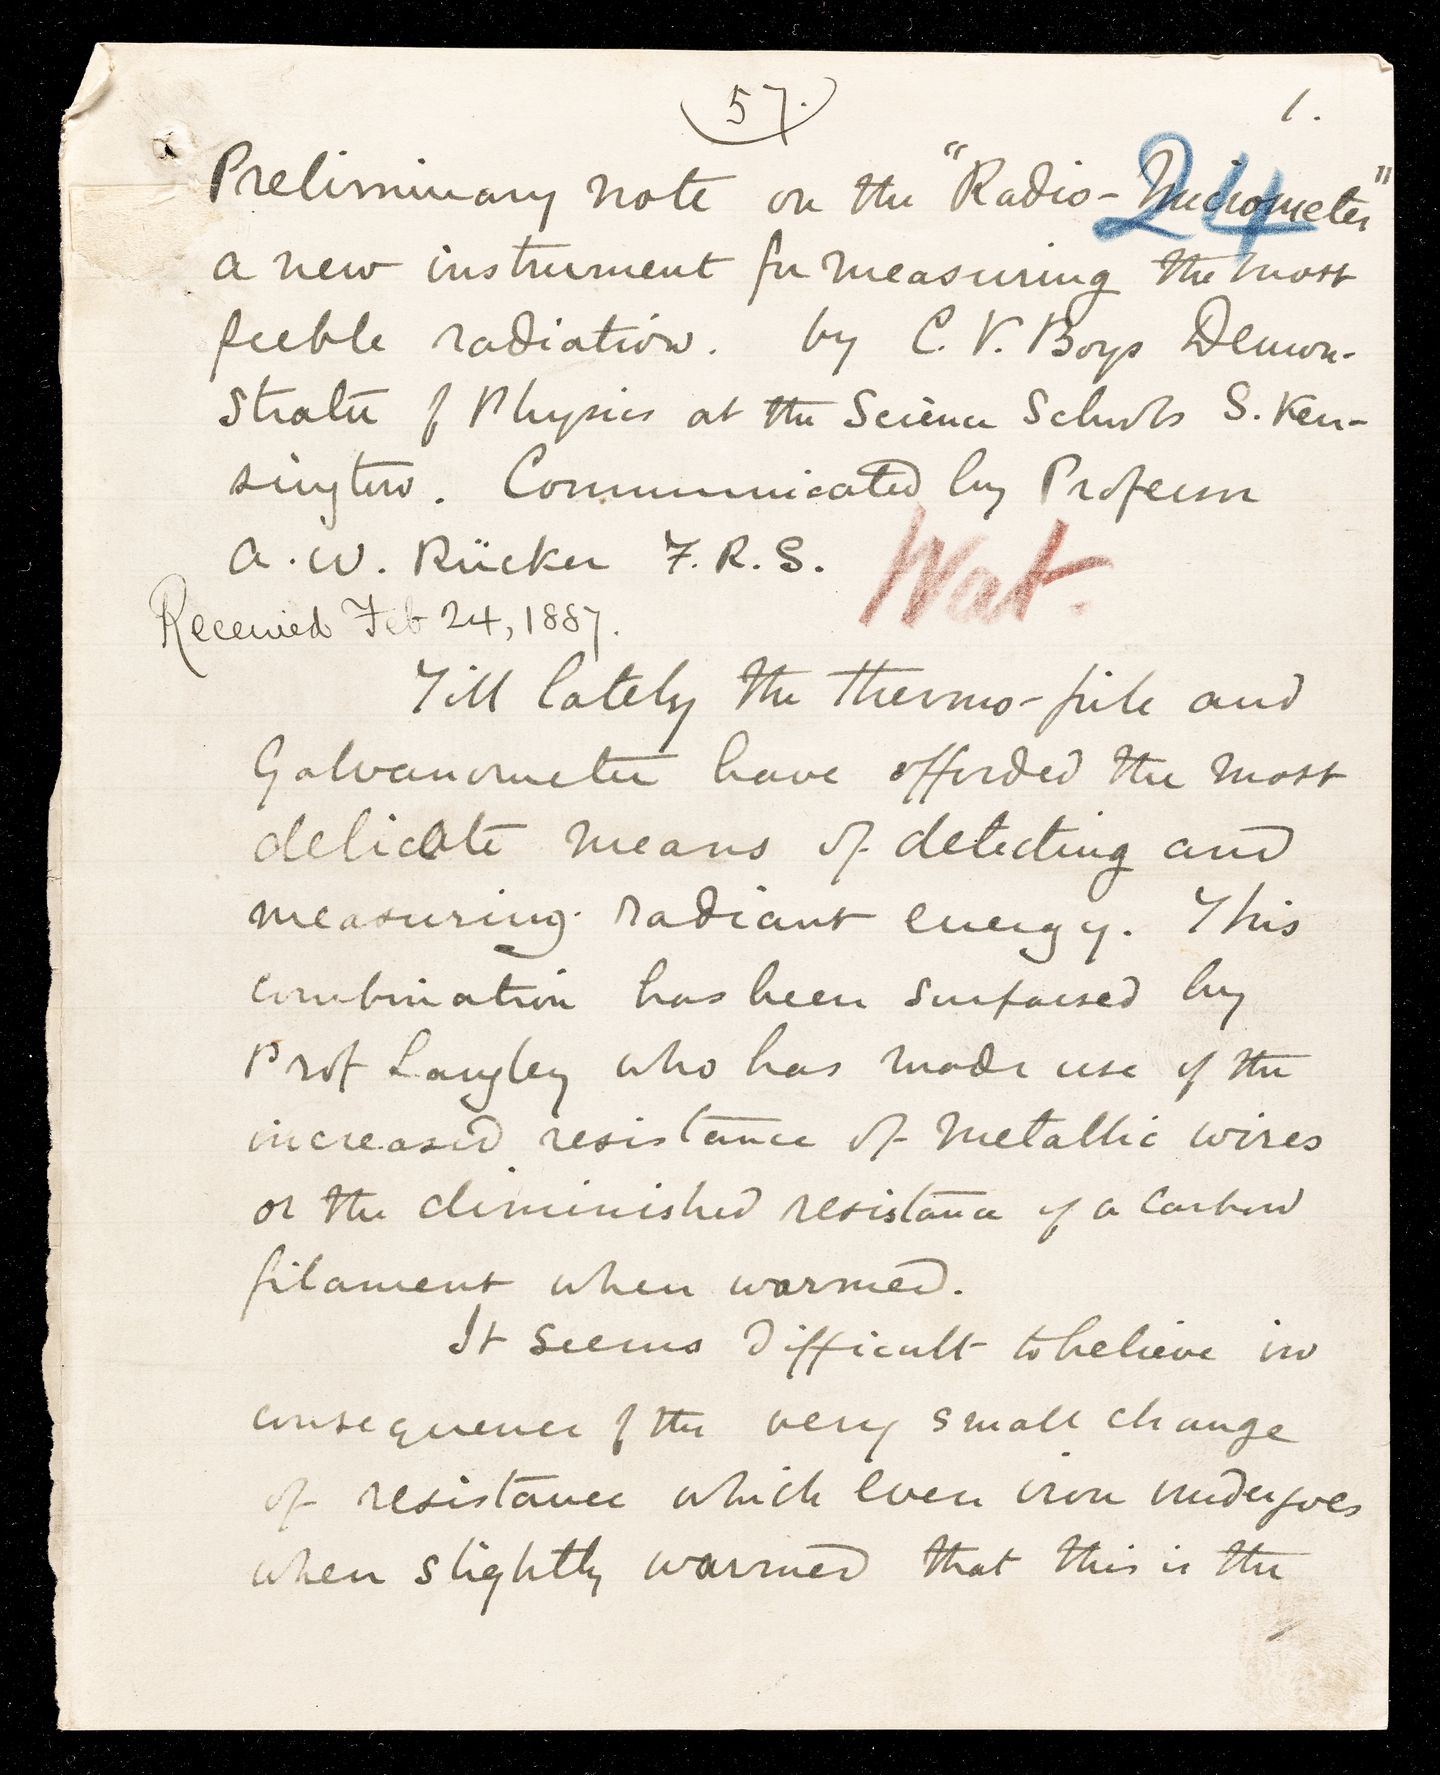 57.
1.
24
Preliminary note on the "Radio-Micrometer"
a new instrument for measuring the most
feeble radiation. by C. V. Boys Demon-
strator of Physics at the Science Schools S. Ken-
sington. Communicated by Professor
A. W. Rücker F.R.S.
Wat.
Received Feb 24, 1887.
Till lately the thermo-pile and
Galvanometer have afforded the most
delicate means of detecting and
measuring radiant energy. This
combination has been surpassed by
Prof Langley who has made use of the
increased resistance of metallic wires
or the diminished resistance of a carbon
filament when warmed.
It seems difficult to believe in
consequence of the very small change
of resistance which even iron undergoes
when slightly warmed that this is the